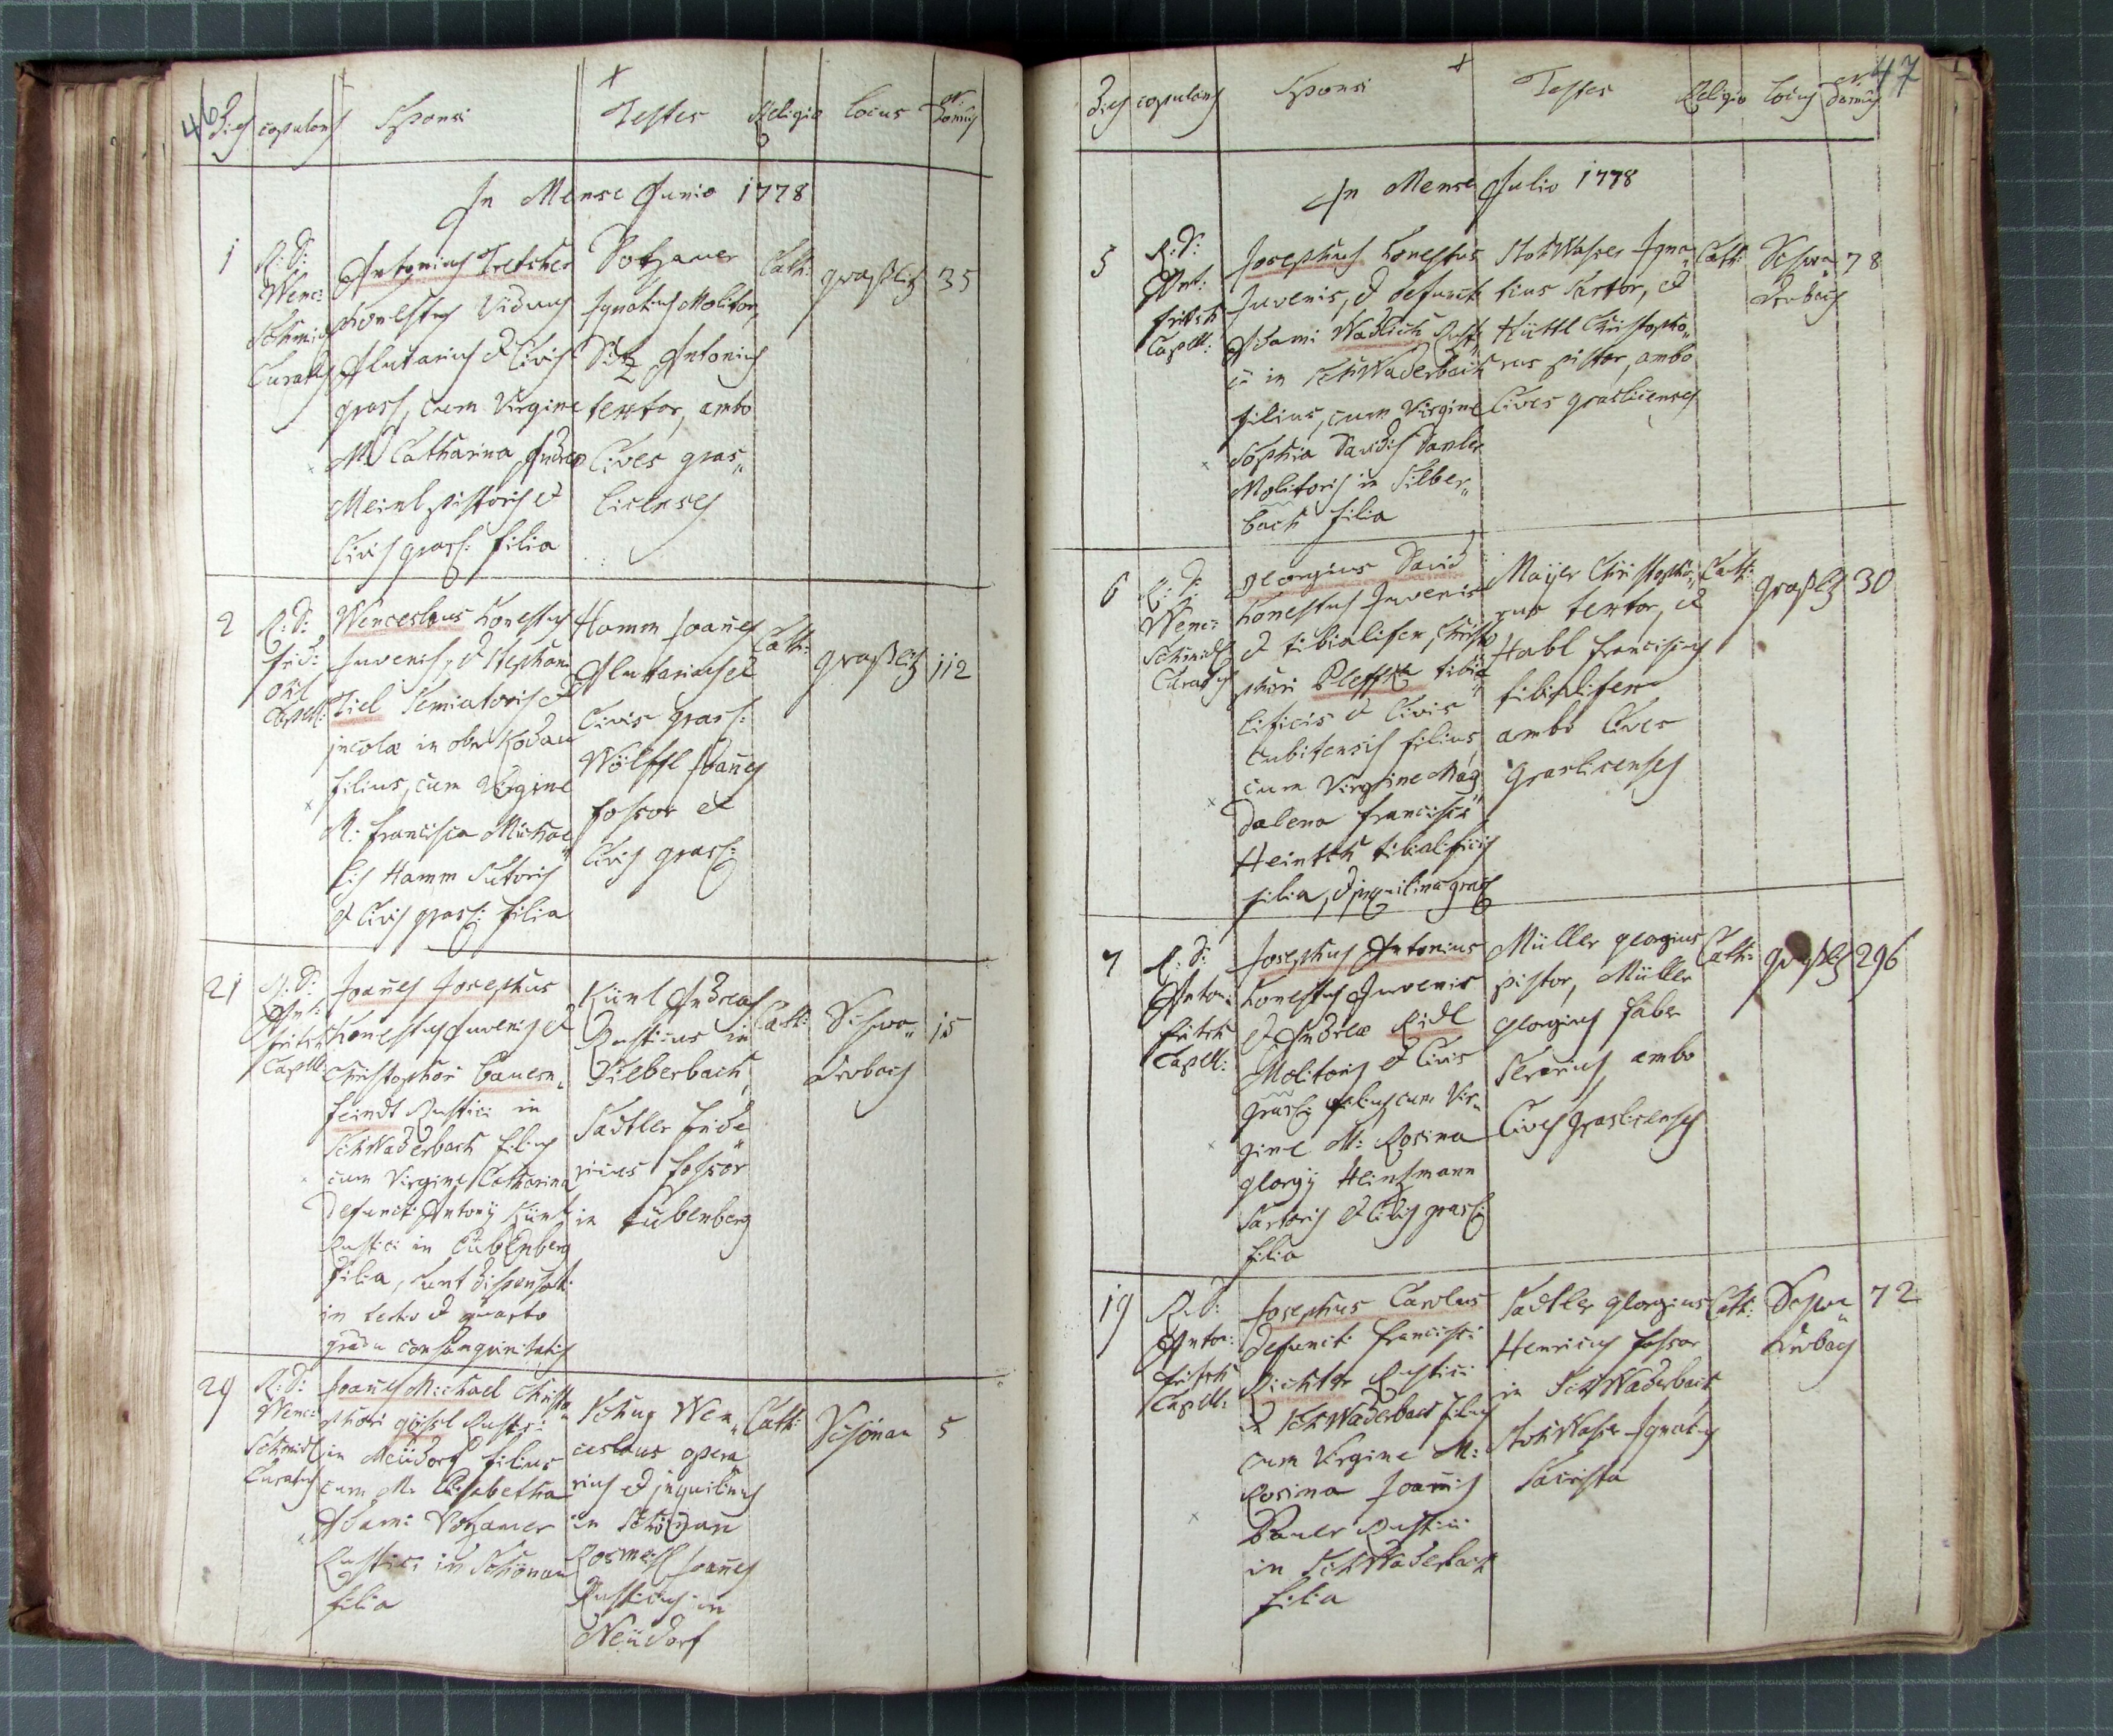 46
Dies copulans Sponsi Testes Religio Locus Nr: Domus
In Mense Junio 1778
1
R: D:
Wenc:
Schmid
Curatus
Antonius Tretscher
Honestus Viduus
Alutarius et Civis
grasl, cum Virgine
M: Catharina Andreæ
Meinl pistoris et
Civis grasl: filia
Votzauer
Ignatius Molitor,
Dietz Antonius
textor, ambo
Cives gras„
licenses
Cath:
graßlitz
35
2
R: D:
frid:
Capell:
Wenceslaus honestus
Juvenis, et Stephani
Tiel Semiatoris et
incolæ in ober Rodau
filius, cum Virgine
M: Francisca Michae„
lis Hamm Sutoris
et Civis grasl: filia
Hamm Joañes
Alutarius et
Civis grasl:
Wölffl Joañes
fossor et
Civis grasl:
Cath:
graßlitz
112
21
R: D:
Ant:
fritsch
Capell:
Joañes Josephus
honestus Juvenis et
Christophori Bauern„
feindt Rustici in
Schwaderbach filius
cum Virgine Catharina
defuncti Antonij Künl
Rustici in Eubenberg
filia, sunt dispensati
in tertio et quarto
gradu consanguinitatis
Künl Andreas
Rusticus in
Silberbach,
Sadtler fride„
ricus fossor
in Eubenberg
Cath:
Schwa„
derbach
15
29
R: D:
Wenc:
Schmidt
Curatus
Joañes Michael Christo„
phori gössl Rustici
in Neüdorf filius
cum M: Elisabetha
Adami Votzauer
Rustici in Schönau
filia
Schug Wen„
ceslaus opera„
rius et inquilinus
in Schönau
Rosmeisl Joañes
Rusticus in
Neüdorf
Cath:
Schönau
5
47
Dies copulans Sponsi Testes Religio Locus Nr: Domus
In Mense Julio 1778
5
R: D:
Ant:
fritsch
Capell:
Josephus honestus
Juvenis, et defuncti
Adami Wadlich Rusti„
ci in Schwaderbach
filius, cum Virgine
Sophia Davidis Danler
Molitoris in Silber„
bach filia
Stohwasser Igna„
tius Sartor, et
Hüttl Christopho„
rus pistor, ambo
Cives graslicenses
Cath:
Schwa„
derbach
78
6
R: D:
Wenc:
Schmidt
Curatus
georgius David
honestus Juvenis
et tibialifex, Christo„
phori Pleffka tibia„
lificis et Civis
Cubitensis filius,
cum Virgine Mag„
dalena francisci
Heintsch tibialificis
filia, et inquilina grasl
Mayer Christopho„
rus textor, et
Habl franciscus
tibialifex
ambo Cives
graslicenses
Cath:
graßlitz
30
7
R: D:
Anton:
fritsch
Capell:
Josephus Antonius
honestus Juvenis
et Andreæ Ridl
Molitoris et Civis
grasl: filius cum Vir„
gine M: Rosina
georgij Heintzmann
Sartoris et Civis grasl:
filia
Müller georgius
pistor, Müller
georgius faber
Serarius ambo
Cives graslicenses
Cath:
graßlitz
296
19
R: D:
Anton:
fritsch
Capell:
Josephus Carolus
defuncti francisci
Richter Rustici
in Schwaderbach filius
cum Virgine M:
Rosina Joañis
Bauer Rustici
in Schwaderbach
filia
Sadtler georgius
Henricus fossor
in Schwaderbach
Stohwasser Ignatius
Sacrista
Cath:
Schwa„
derbach
72